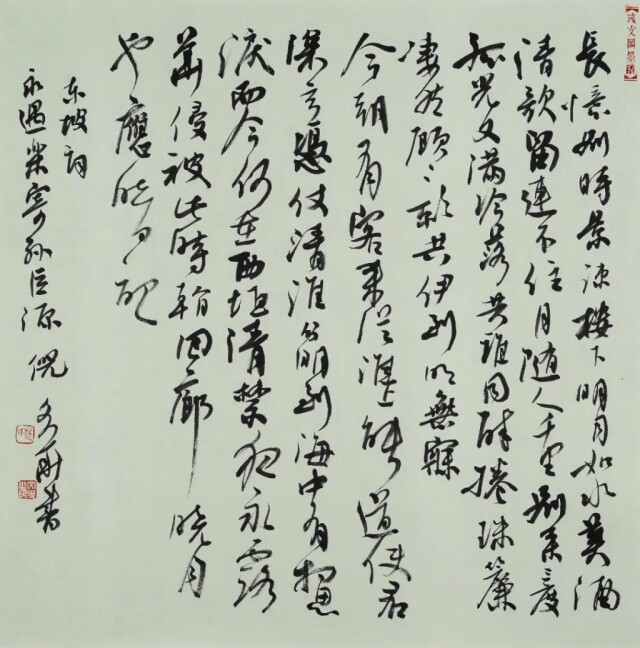 長憶別時景疎樓下明月如水美酒
清歌留連不住月隨人千里別來三度
孤光又滿冷落共誰同醉捲珠簾
凄然顧影共伊到明無寐
今朝有客來從淮上能道使君
深意憑仗清淮分明到海中有相思
淚而今何在西垣清禁夜永露
華侵被此時看回廊曉月
也應暗記
東坡詞
永遇樂寄孫巨源 倪 書